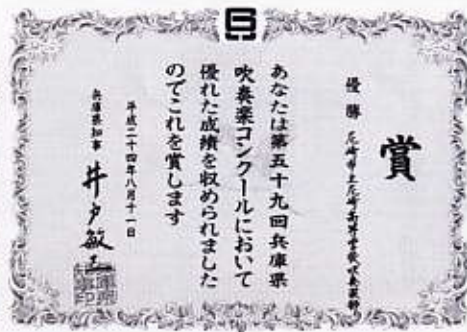 賞
優勝 尼崎市立尼崎高等学校吹奏楽部
あなたは第五十九回兵庫県
吹奏楽コンクールにおいて
優れた成績を収められました
のでこれを賞します
平成二十四年八月十一日
兵庫県知事 井戸敏三
兵庫県知事印